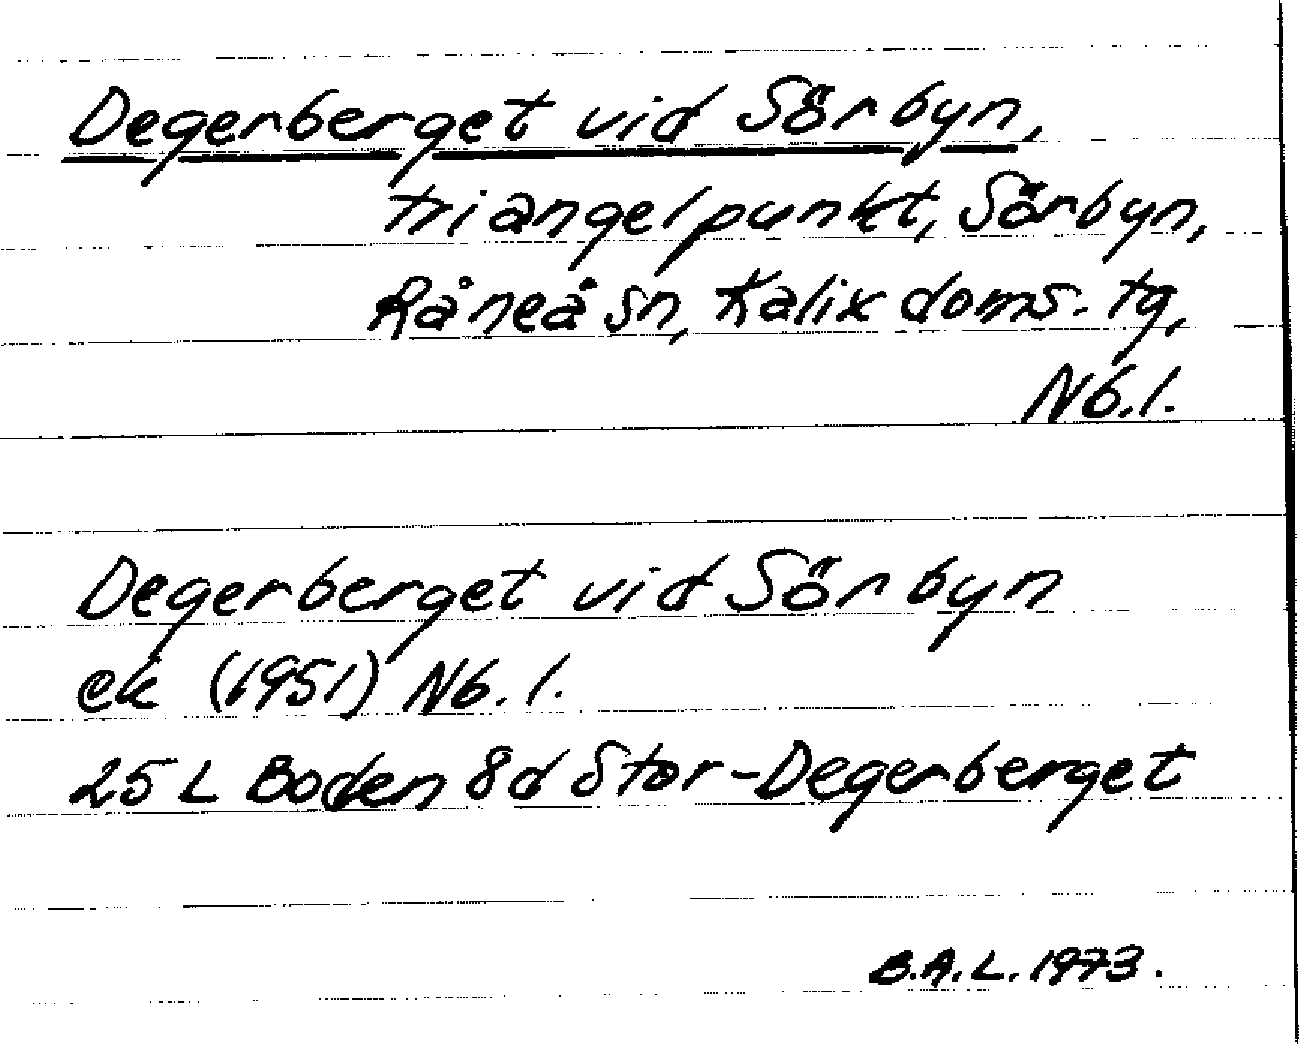 Degerberget vid Sörbyn,
triangelpunkt, Sörbyn,
Råneå sn, Kalix doms. tg,
Nb.l.
Degerberget vid Sörbyn
ek (1951) Nb.l.
25 L Boden 8d Stor-Degerberget
B.A.L. 1973.